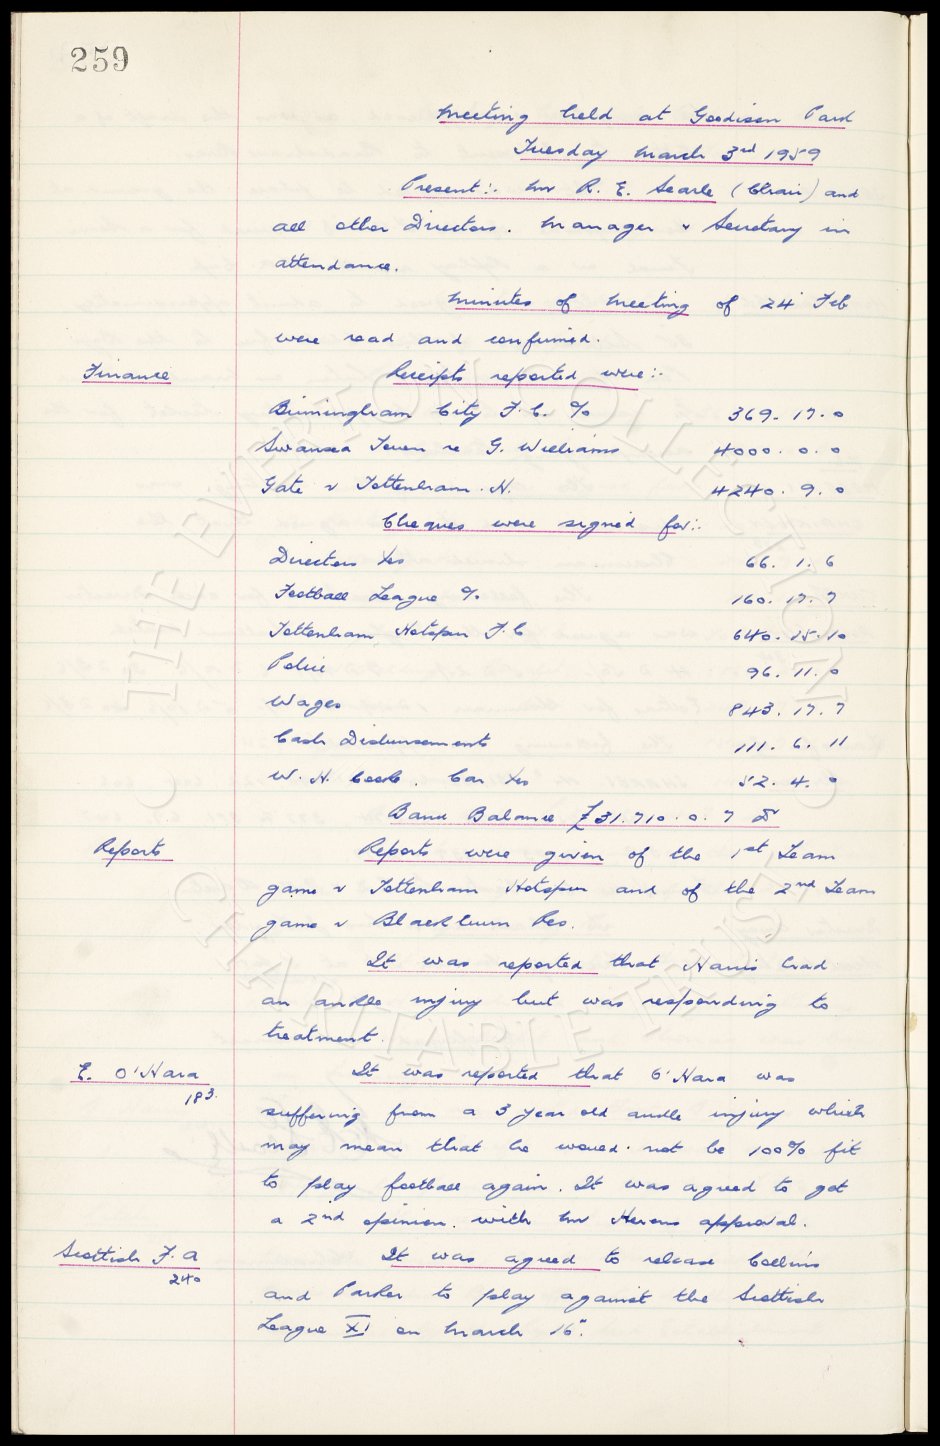 259
Meeting held at Goodison Park
Tuesday March 3rd 1959
Present:- Mr R. E. Searle (Chair) and
all other Directors. Manager & Secretary in
attendance.
Minutes of meeting of 24 Feb
were read and confirmed.
Finance
Receipts reported were:-
Birmingham City F.C. % 369. 17. 0
Swansea Town re G. Williams 4000. 0. 0
Gate v Tottenham. H. 4240. 9. 0
Cheques were signed for:-
Directors Xes 66. 1. 6
Football League % 160. 17. 7
Tottenham Hotspur F.C 640. 15. 10
Police 96. 11. 0
Wages 843. 17. 7
Cash Disbursements 111. 6. 11
W. H. Cook. Car Xes 52. 4. 0
Bank Balance £31.710. 0. 7 Dr
Reports
Reports were given of the 1st Team
game v Tottenham Hotspur and of the 2nd Team
game v Blackburn Res.
It was reported that Harris had
an ankle injury but was responding to
treatment.
E. O'Hara
183.
It was reported that O'Hara was
suffering from a 3 year old ankle injury which
may mean that he would not be 100% fit
to play football again. It was agreed to get
a 2nd opinion. with Mr approval.
Scottish F.A
240
It was agreed to release Collins
and Parker to play against the Scottish
League XI on March 16".
THE EVERTON COLLECTION
CHARITABLE TRUST